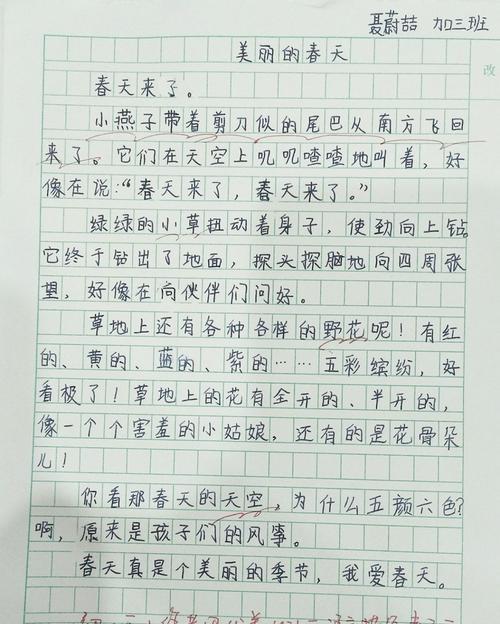 聂蔚喆 加三班
改
美丽的春天
春天来了。
小燕子带着剪刀似的尾巴从南方飞回
来了。它们在天空上叽叽喳喳地叫着，好
像在说：“春天来了，春天来了。”
绿绿的小草扭动着身子，使劲向上钻。
它终于钻出了地面，探头探脑地向四周张
望，好像在向伙伴们问好。
草地上还有各种各样的野花呢！有红
的、黄的、蓝的、紫的……五彩缤纷，好
看极了！草地上的花有全开的、半开的，
像一个个害羞的小姑娘，还有的是花骨朵
儿！
你看那春天的天空，为什么五颜六色？
啊，原来是孩子们的风筝。
春天真是个美丽的季节，我爱春天。